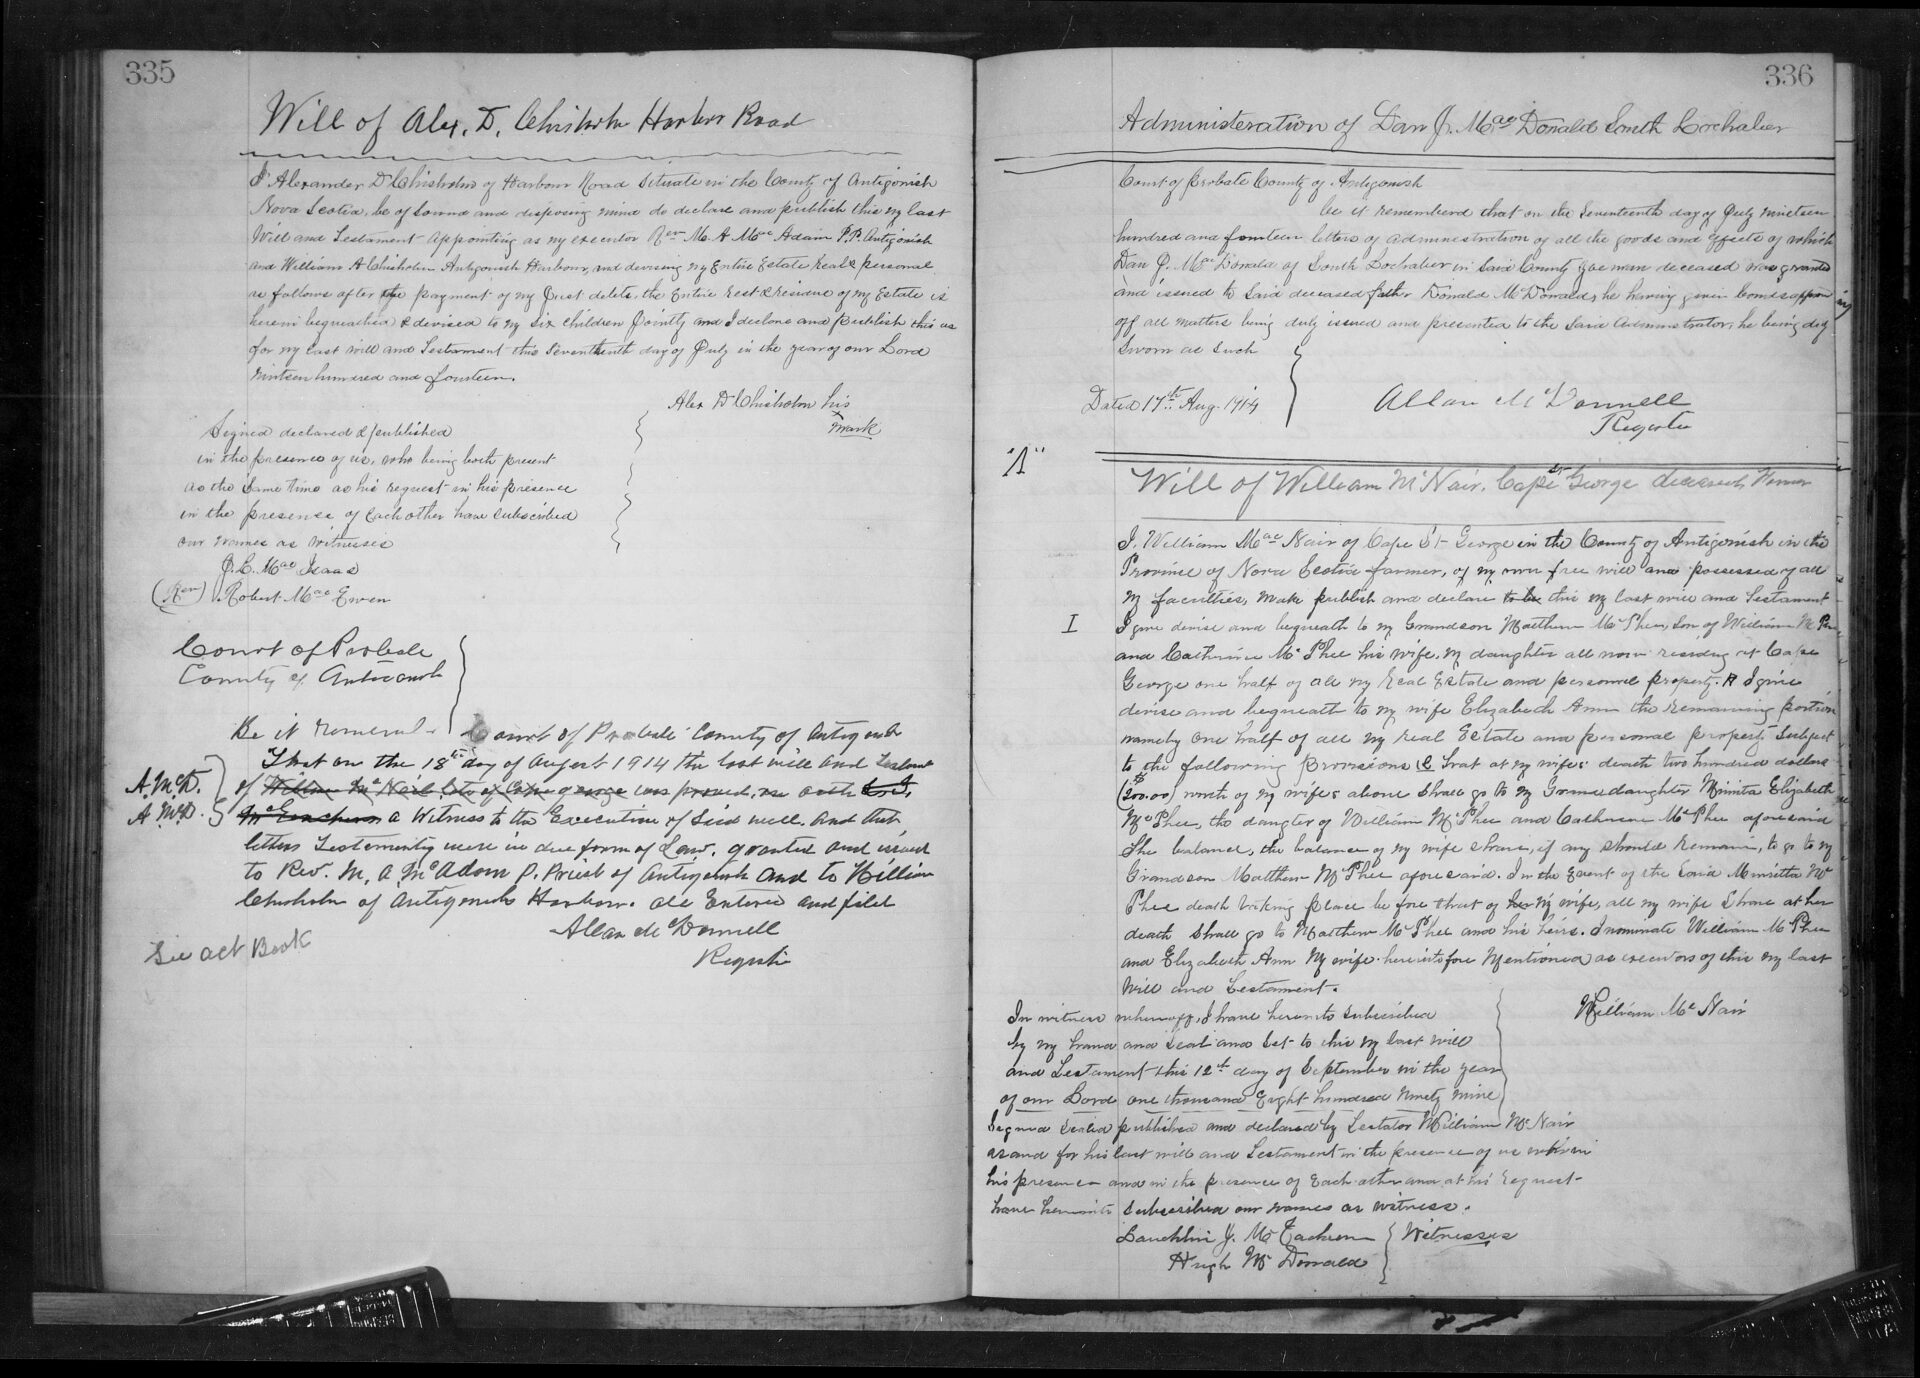 335
Will of Alex. D. Chisholm Harbor Road
I Alexander D Chisholm of Harbour Road Situate in the County of Antigonish
Nova Scotia, be of Sound and disposing mind do declare and publish this my last
Will and Testament appointing as my executor Rev M. A MacAdam P.P. Antigonish
and William A Chisholm Antigonish Harbour, and devising my Entire Estate real & personal
as follows after the payment of my Just debts, the Entire rest & residue of my Estate is
herein bequeathed & devised to my six children Jointly and I declare and publish this as
for my last will and Testament this Seventeenth day of July in the year of our Lord
nineteen hundred and fourteen.
Alex D Chisholm his
x
mark
Signed declared & published
in the presence of us, who being both present
at the same time as his request in his presence
in the presence of each other have subscribed
our names as witnesses
J. C. MacIsaac
(Rev) Robert MacEwen
Court of Probate
County of Antigonish
Be it remem Court of Probate County of Antigonish
That on the 18th day of August 1914 the last will and Testament
A. McD. of William McNeil late of Cape George was proved, on oath
A. McD. McEachern a Witness to the Execution of Said will. And that
letters Testamentary were in due form of Law, granted and issued
to Rev. M. A. McAdam P. Priest of Antigonish and to William
Chisholm of Antigonish Harbour. All Entered and filed
Allan McDonnell
Registrar
See act Book
336
Administeration of Dan J. MacDonald South Lochaber
Court of Probate County of Antigonish
be it rememberd that on the Seventeenth day of July nineteen
hundred and fourteen letters of administration of all the goods and effects of which
Dan J. MacDonald of South Lochaber in Said County yeoman deceased was granted
and issued to Said deceased father Donald McDonald, he having given bonds
off all matters being duly issued and presented to the Said Administrator, he being duly
Sworn as such
Dated 17th Aug. 1914
Allan McDonnell
Registrar
"A"
Will of William McNair. Cape St George deceased, Farmer
I, William MacNair of Cape St George in the County of Antigonish in the
Province of Nova Scotia farmer, of my own free will and possessed of all
my faculties, make publish and declare to be this my last will and Testament
I I give devise and bequeath to my Grandson Matthew McPhee, Son of William McPhee
and Catherine McPhee his wife, my daughter all now residing at Cape
George one half of all my real Estate and personal property. I give
devise and bequeath to my wife Elizabeth Ann the remaining portion
namely one half of all my real Estate and personal property Subject
to the following provisions that at my wifes death two hundred dollars
(200.00) worth of my wifes above Share go to my Granddaughter Minnita Elizabeth
McPhee, the daugter of William McPhee and Catherine McPhee aforesaid
The balance, the balance of my wife share, if any should remain, to go to my
Grandson Matthew McPhee aforesaid. In the Event of the Said Minsitta Mc
Phee death taking place before that of her my wife, all my wife Share at her
death Shall go to Matthew McPhee and his heirs. I nominate William McPhee
and Elizabeth Ann my wife heretofore mentioned as executors of this my last
will and Testament.
William McNair
In witness whereoff, I have hereunto subscribed
by my hand and Seal and Set to this my last will
and Testament this 12th day of September in the year
of our Lord one thousand Eight hundred Ninety nine
Signed Sealed published and declared by Testator William McNair
as and for his last will and Testament in the presence of us who in
his presence and in the presence of Each other and at his request
have hereunto subscribed our names as witness.
Lauchlin J. McEachern
Witnesses
Hugh McDonald